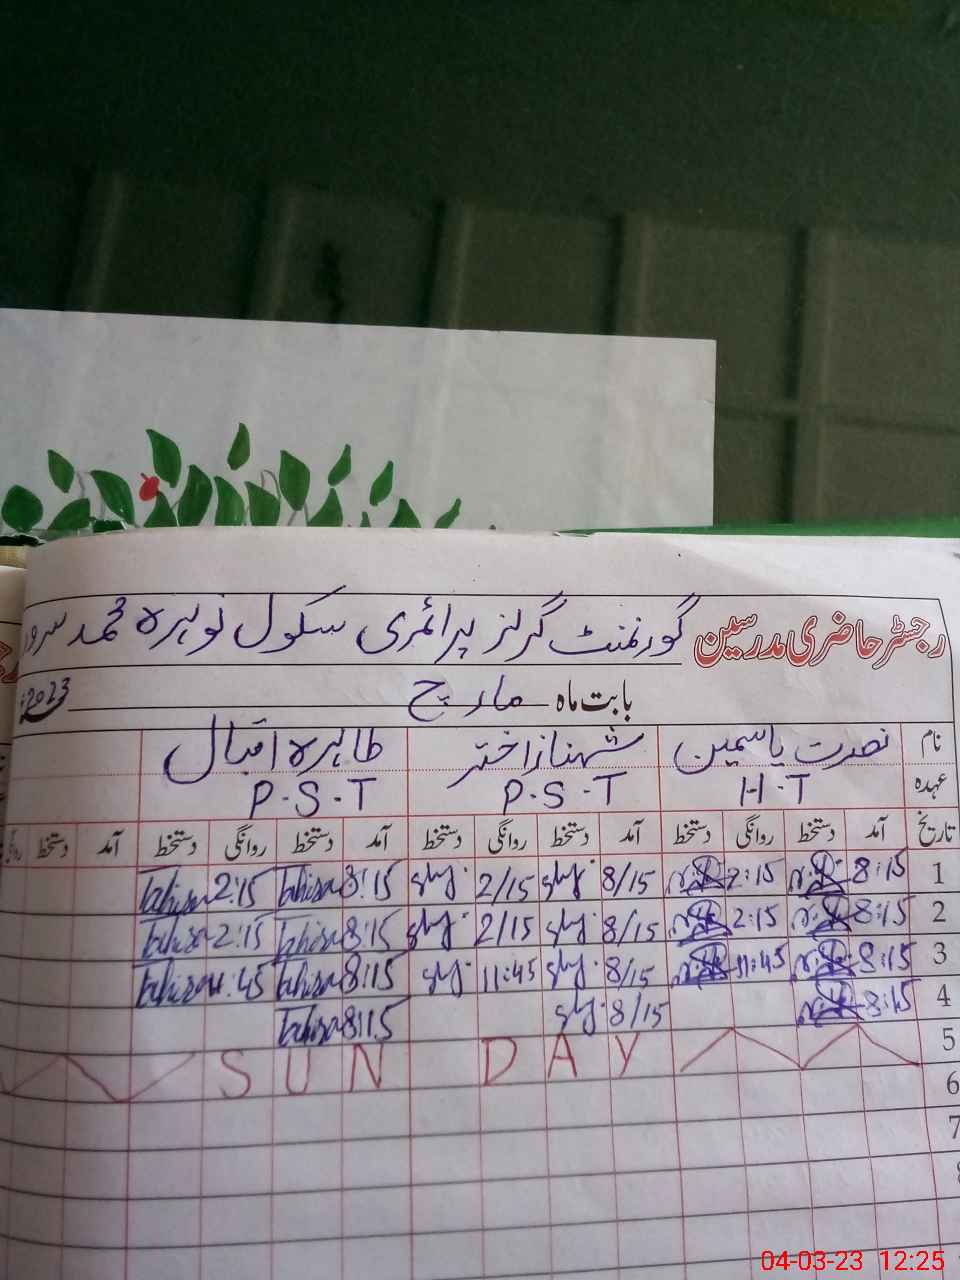 رجسٹر حاضری مدرسین گورنمنٹ گرلز پرائمری سکول نوہرہ محمد سرور
بابت ماہ مارچ 2023
نام نصرت یاسمین شہناز اختر طاہرہ اقبال
عہدہ H.T P.S.T P.S.T
تاریخ آمد دستخط روانگی دستخط آمد دستخط روانگی دستخط آمد دستخط روانگی دستخط آمد دستخط
1 8:15 2:15 8/15 2/15 8:15 tahira 2:15 tahira
2 8:15 2:15 8/15 2/15 8:15 tahira 2:15 tahira
3 8:15 11:45 8/15 11:45 8:15 tahira 11:45 tahira
4 8:15 8/15 8:15 tahira
5 SUN DAY
6
7
04-03-23 12:25